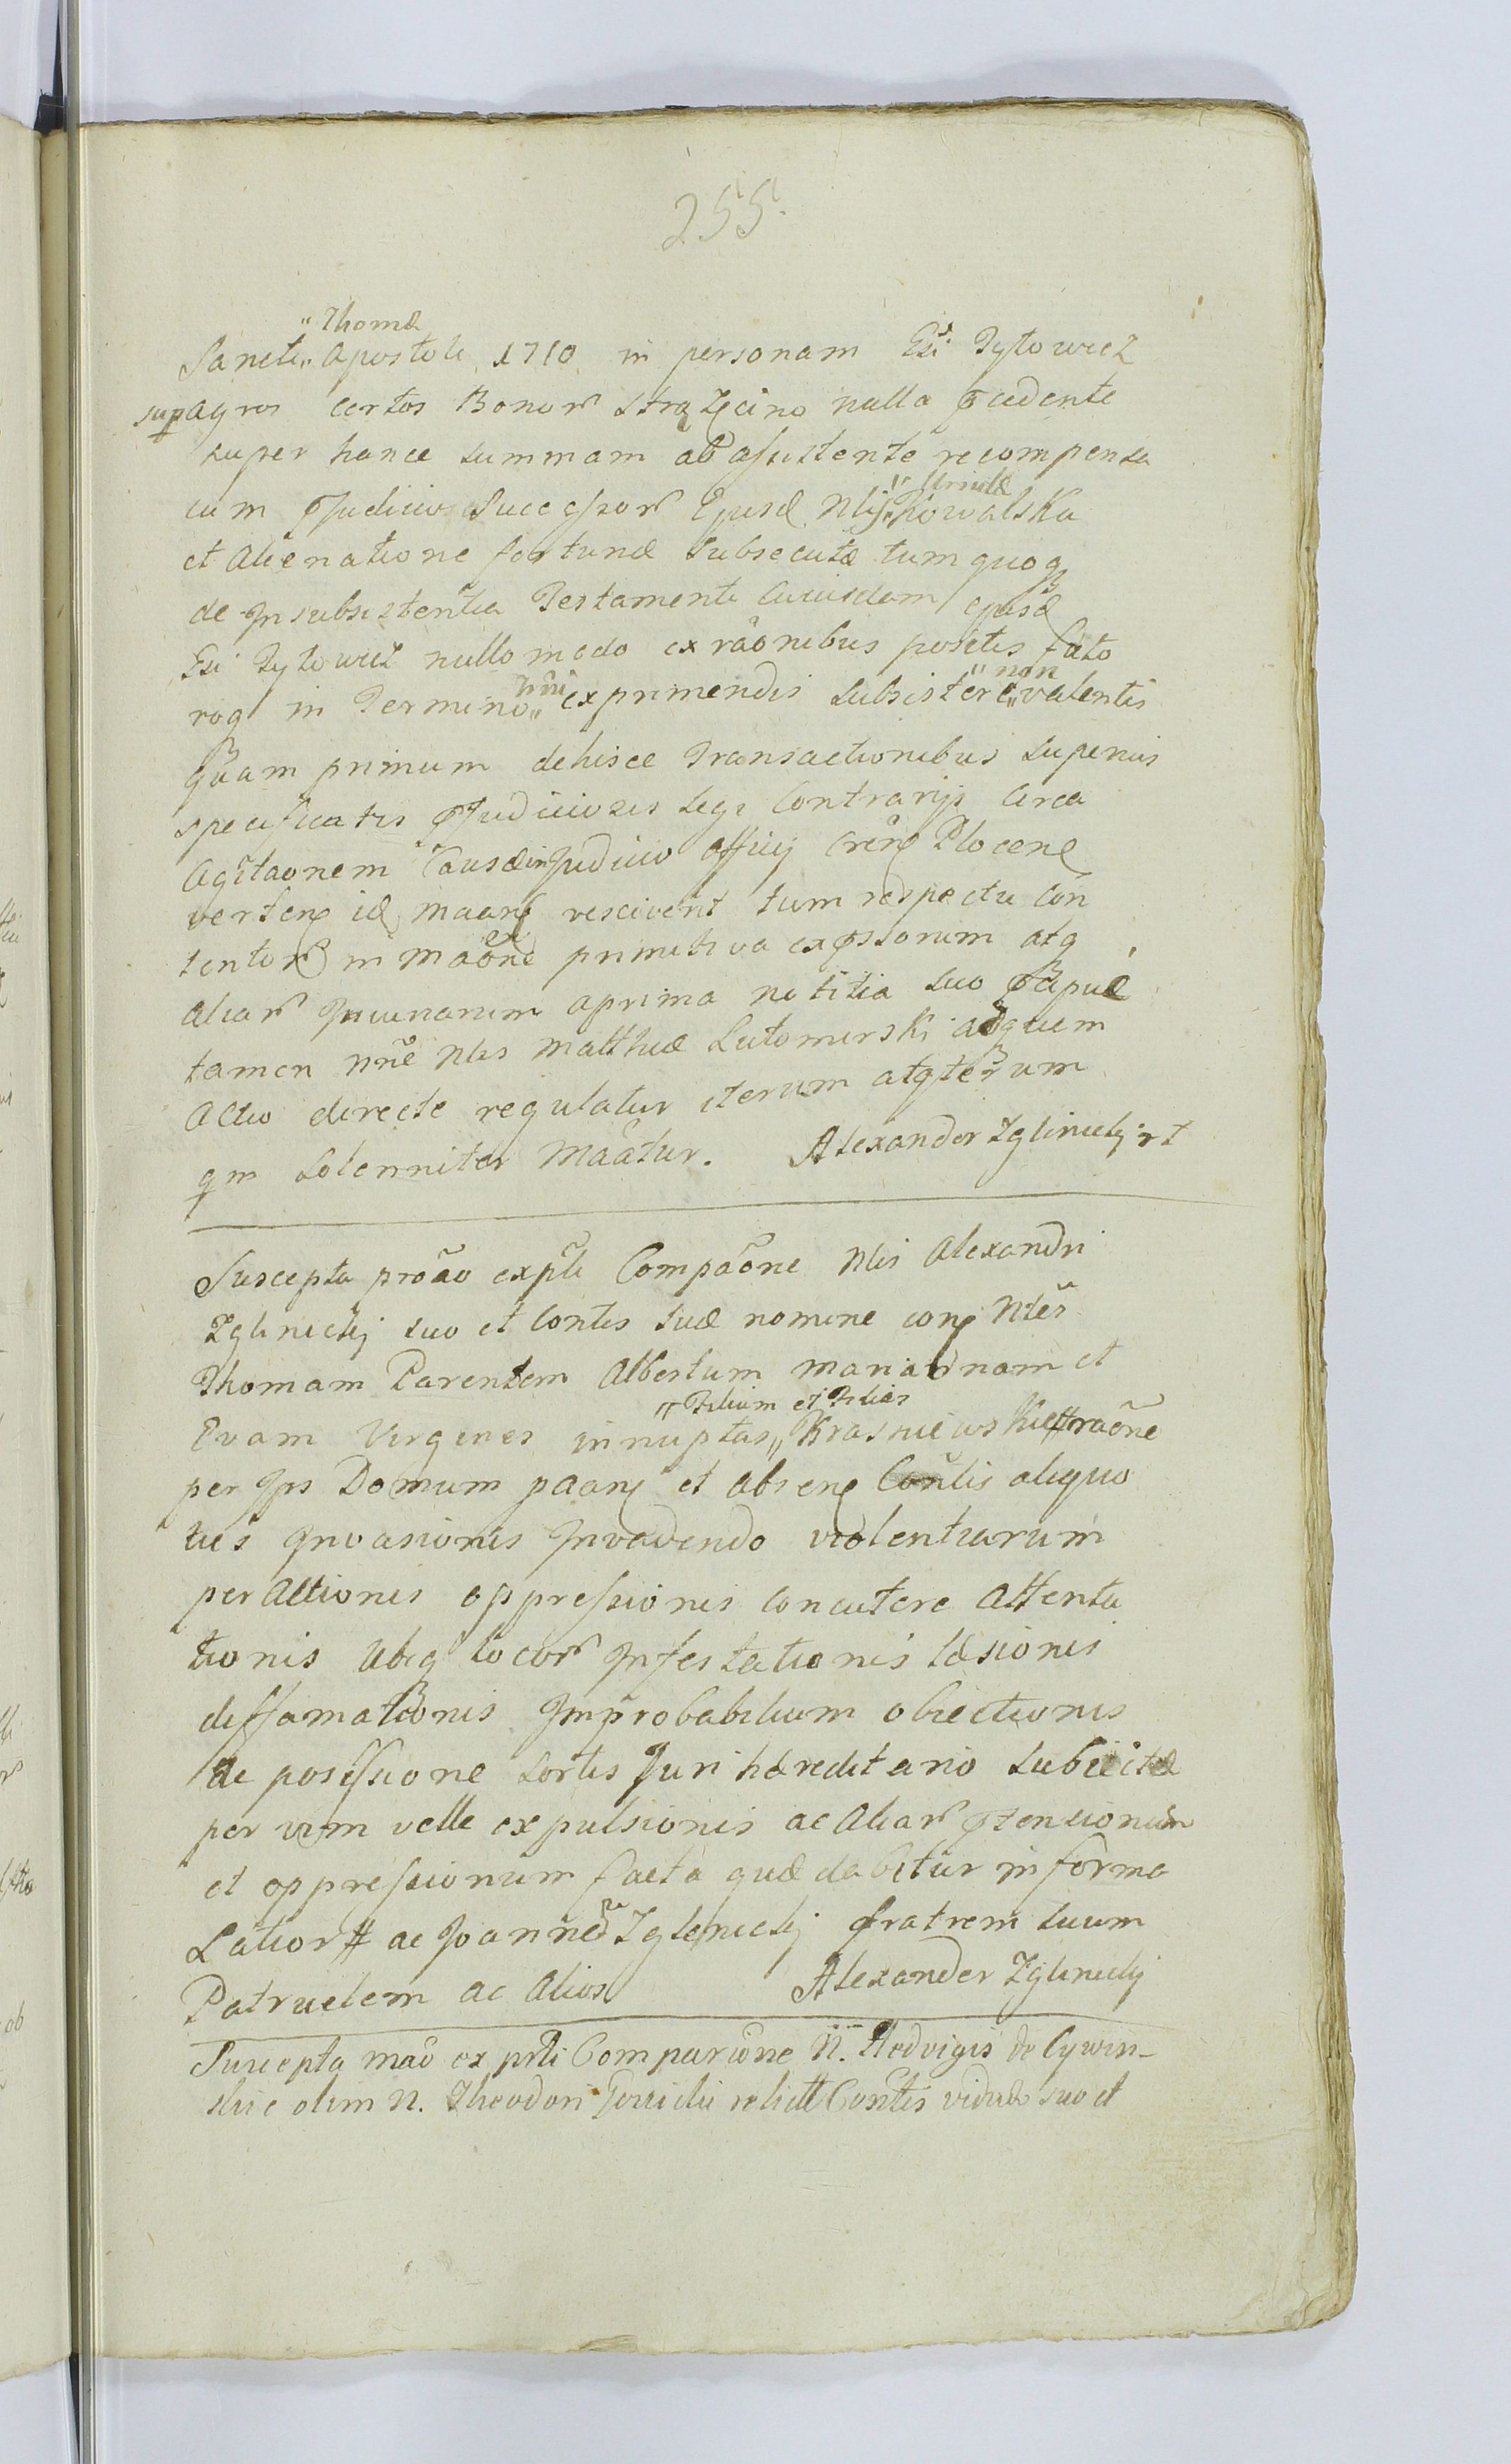 255.
" Thomæ
Sancti " Apostoli 1710 in personam Exi Tytowicz
sup agros certos Bonor Strązęcino nulla præcedente
super hance summam ab assistente recompensa
cum præjudicio Successor Ejusd Nlis " Ursulæ Kowalska
et Alienatione fortunæ subsecuta tum quoq
de Insubsistentia Testamenti Cuiusdam ejusd
Exi Tytowicz nullo modo ex raonibus positis fato
roq in Termino " exprimendis subsistere " non valentis
quam primum dehisce Transactionibus superius
specificatis præjudiciosis legi Contrarijs Circa
Agitaonem Causæ in Judicio Officij Plocen
verten id maan resciverit tum respectu Con
tentor in maone primitiva expssorum atq
aliar Injuriarum aprima notitia suo
tamen nne Nlis Matthiæ Lutomirski adquem
Actio directe regulatur iterum atq iterum
qm Solenniter Maatur. Alexander Zglinicky
Suscepta proao ex pti Compaone Nlis Alexandri
Zglinicky suo et Contis suæ nomine con Nles
Thomam Parentem Albertum Mariannam et
" Filium et Filias
Evam Virgines innuptas " Krasniewskie # raone
per Ips Domum paan et absen Contis aliquo
ties Invasionis Invadendo violentiarum
per Actionis oppressionis concutere Attenta
tionis Ubiq locor Infestationis læsionis
diffamationis Improbabilium obiectionis
de possessione sortis Juri hæreditario subiectæ
per vim velle expulsionis ac Aliar prætensionum
et oppressionum facta quæ dabitur in forma
Latior # ac Joannem Zglinicky fratrem suum
Patruelem ac Alios Alexander Zglinicky
Suscepta mao ex pti Comparione N. Hedvigis de Cywin-
skie olim N. Theodori relictæ Contis viduæ suo et